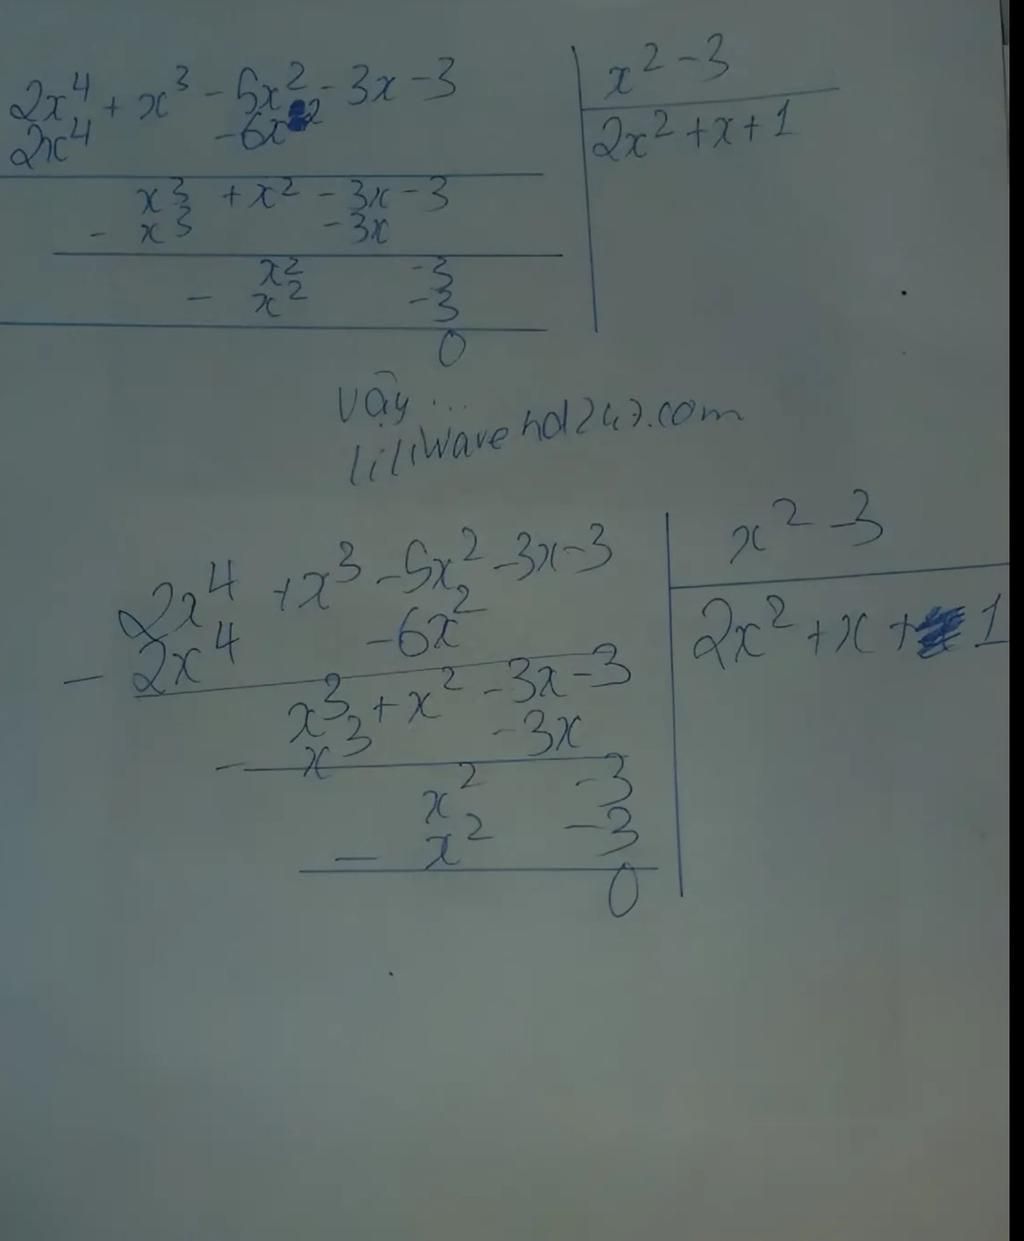 2x⁴ + x³ - 5x² - 3x - 3 | x² - 3
2x⁴ - 6x² | 2x² + x + 1
x³ + x² - 3x - 3
- x³ - 3x
x² - 3
- x² - 3
0
Vậy ...
2x⁴ + x³ - 5x² - 3x - 3 | x² - 3
- 2x⁴ - 6x² | 2x² + x + 1
x³ + x² - 3x - 3
- x³ - 3x
x² - 3
- x² - 3
0